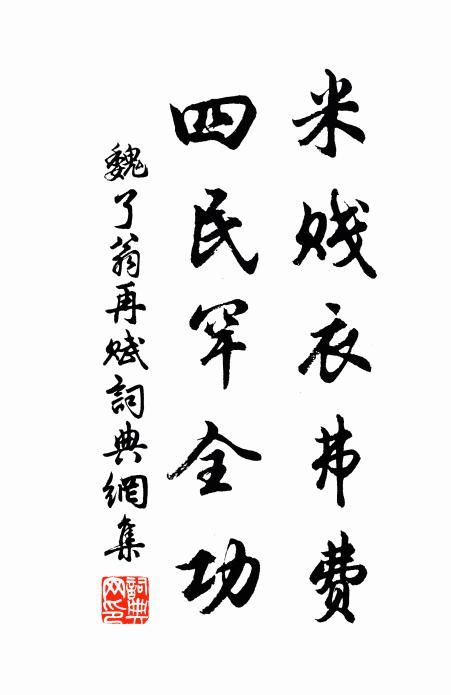 米贱衣弗费
四民罕全功
魏了翁再赋詞典網集
詞典网印